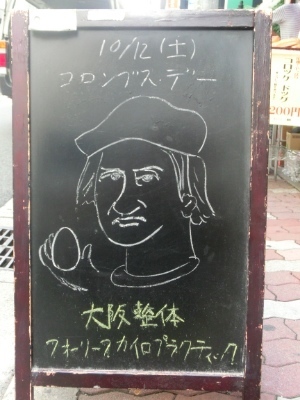 10/12(土)
コロンブス・デー
大阪整体
フォーリーフカイロプラクティック
200円